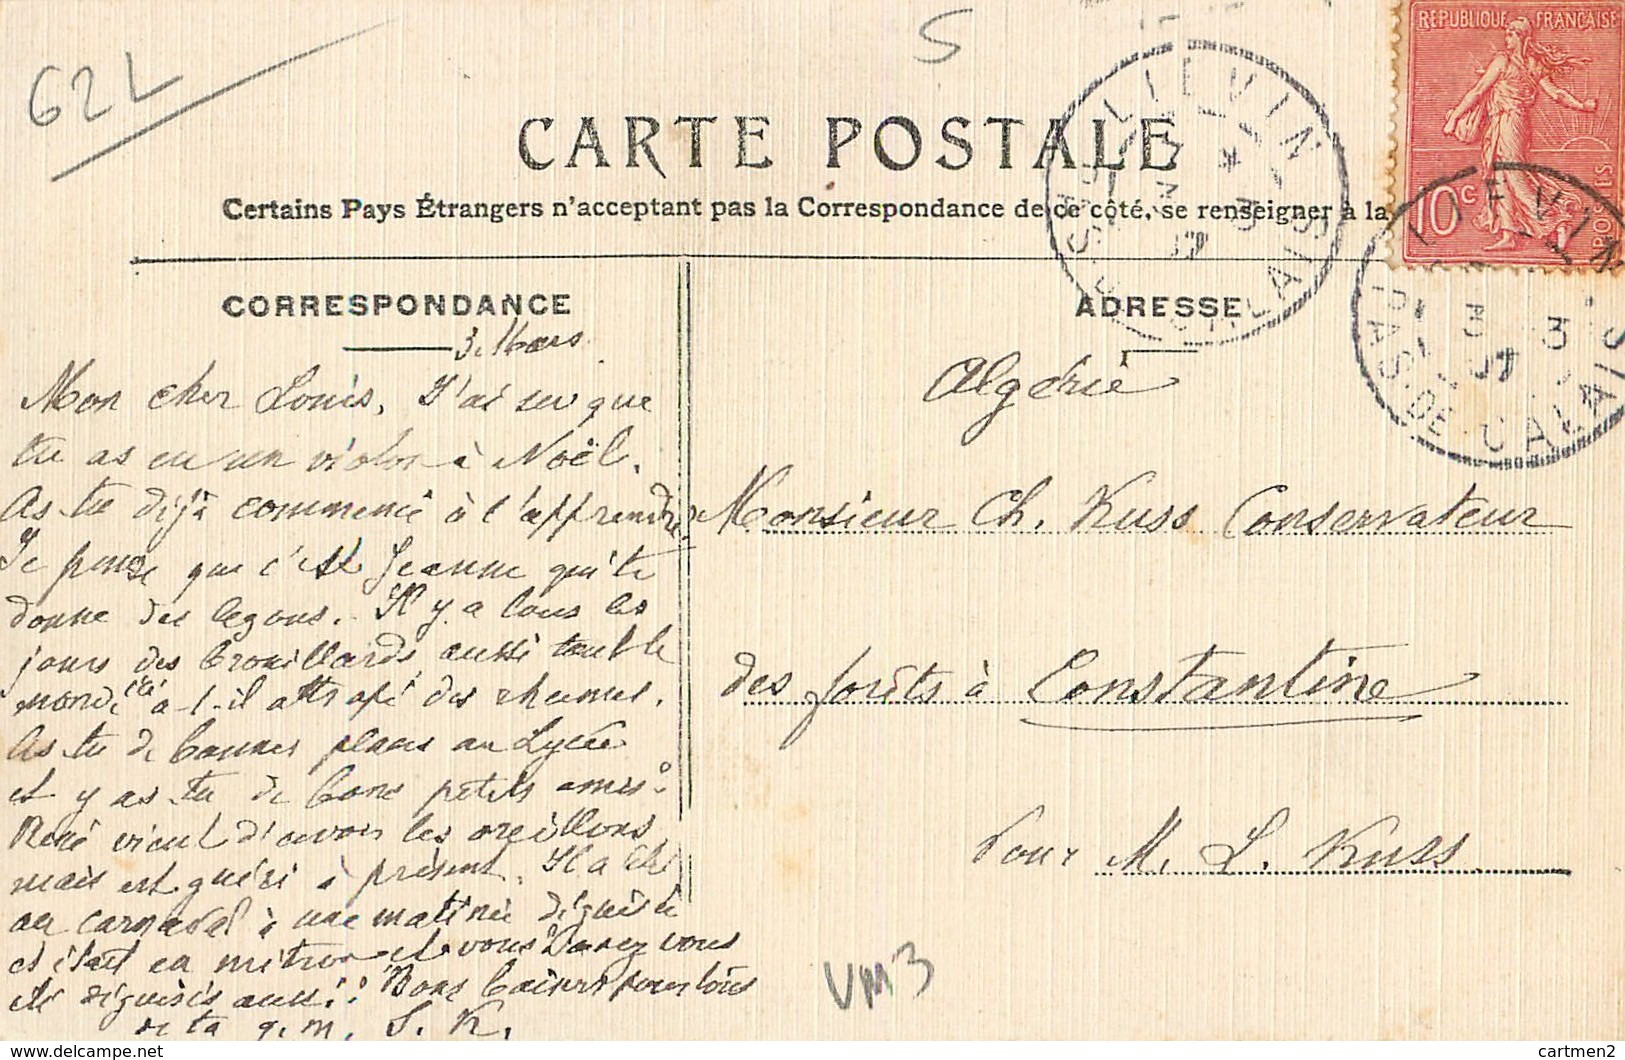 62L
S
REPUBLIQUE FRANÇAISE
10c
POSTES
LIEVIN
PAS-DE-CALAIS
LIEVIN
PAS-DE-CALAIS
CARTE POSTALE
Certains Pays Étrangers n'acceptent pas la Correspondance de ce côté, se renseigner à la
CORRESPONDANCE
3. Mars
Mon cher Louis, J'ai su que
tu as eu un violon à Noël.
As tu déjà commencé à l'apprendre?
Je pense que c'est Jeanne qui te
donne des leçons. Il y a tous les
jours des brouillards, aussi tout le
monde a-t-il attrapé des rhumes.
As tu de bonnes places au Lycée
et y as-tu de bons petits amis?
René vient d'avoir les oreillons
mais est guéri à présent. Il a été
au carnaval à une matinée déguisée
et était en mitron et vous avez vous
été déguisés aussi? Bons baisers pour tous
de ta g. m. S. K.
ADRESSE
Algérie
Monsieur Ch. Kuss Conservateur
des forêts à Constantine
Pour M. L. Kuss
VM3
cartmen2